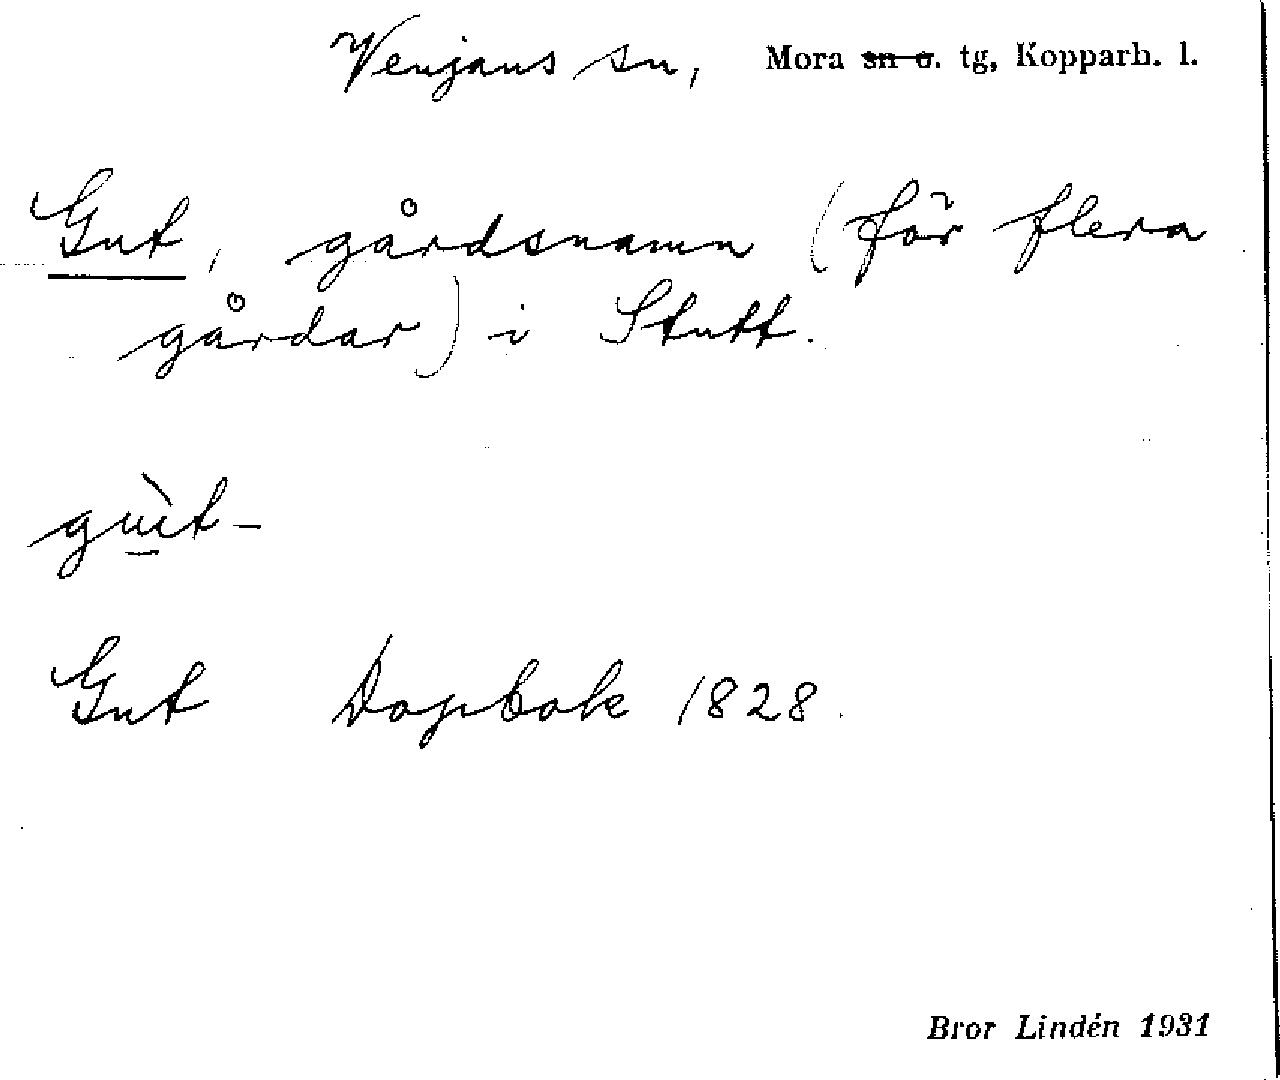 Venjans sn, Mora sn o. tg, Kopparb. l.
Gut, gårdsnamn (för flera
gårdar) i Stutt.
gùt-
Gut Dopbok 1828.
Bror Lindén 1931